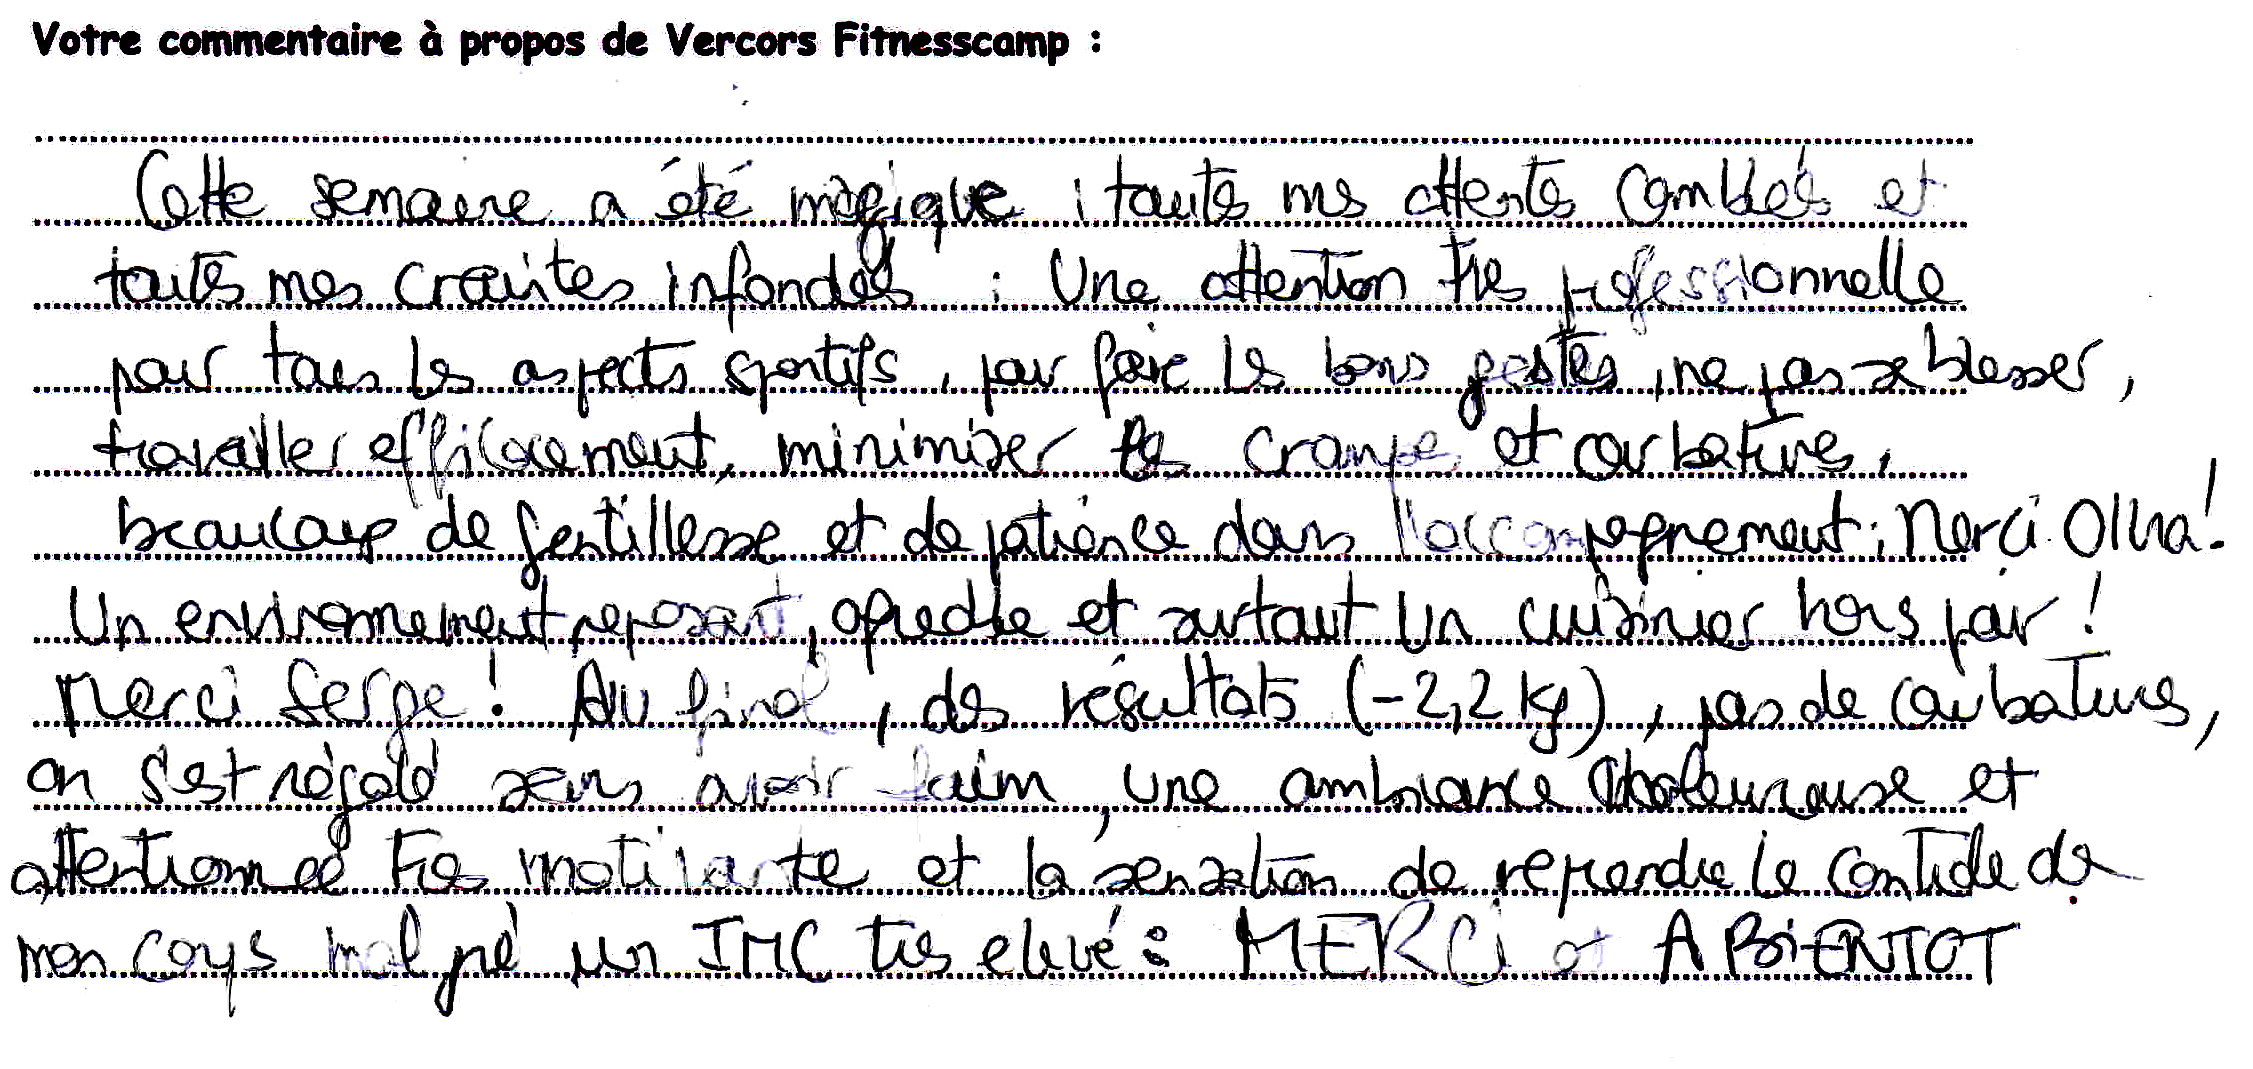 Votre commentaire à propos de Vercors Fitnesscamp :
Cette semaine a été magique ; toutes mes attentes comblées et
toutes mes craintes infondées : Une attention très professionnelle
pour tous les aspects sportifs, pour faire les bons gestes, ne pas se blesser,
travailler efficacement, minimiser les crampes et courbatures,
beaucoup de gentillesse et de patience dans l'accompagnement : Merci Olha !
Un environnement reposant, agréable et surtout un cuisinier hors pair !
Merci Serge ! Au final, des résultats (-2,2 kg), pas de courbatures,
on s'est régalé sans avoir faim, une ambiance chaleureuse et
attentionnée très motivante et la sensation de reprendre le contrôle de
mon corps malgré un IMC très élevé : MERCi et A BiENTOT